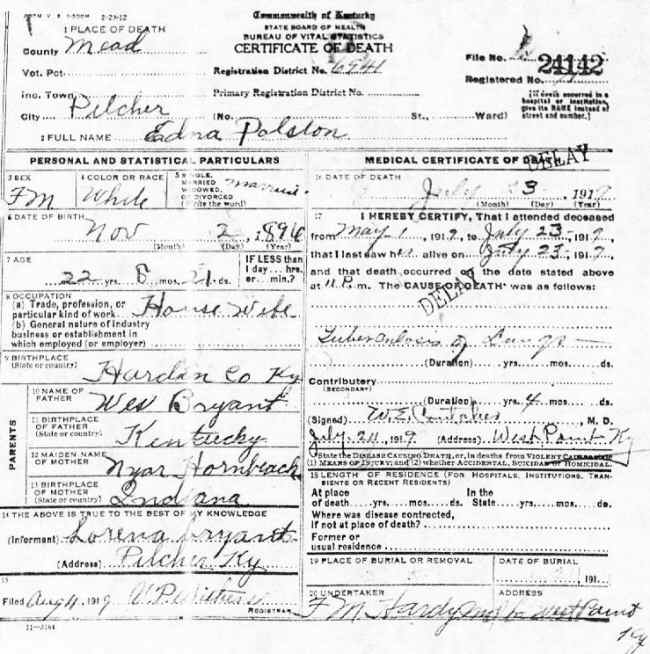 Commonwealth of Kentucky
STATE BOARD OF HEALTH
BUREAU OF VITAL STATISTICS
CERTIFICATE OF DEATH
1 PLACE OF DEATH
County Mead
Vot. Pct.
Registration District No. 6941
File No. 24142
Registered No.
Inc. Town
Primary Registration District No.
(If death occurred in a hospital or institution, give its NAME instead of street and number.)
City Pilcher (No. St., Ward)
2 FULL NAME Edna Polston
PERSONAL AND STATISTICAL PARTICULARS
3 SEX FM
4 COLOR OR RACE White
5 SINGLE, MARRIED, WIDOWED, OR DIVORCED (Write the word) Married
6 DATE OF BIRTH Nov 2, 1896
(Month) (Day) (Year)
7 AGE 22 yrs. 8 mos. 21 ds.
IF LESS than 1 day... hrs. or min.?
8 OCCUPATION
(a) Trade, profession, or particular kind of work House Wife
(b) General nature of industry business or establishment in which employed (or employer)
9 BIRTHPLACE (State or country) Hardin Co Ky
PARENTS
10 NAME OF FATHER Wes Bryant
11 BIRTHPLACE OF FATHER (State or country) Kentucky
12 MAIDEN NAME OF MOTHER Hornback
13 BIRTHPLACE OF MOTHER (State or country) Indiana
14 THE ABOVE IS TRUE TO THE BEST OF MY KNOWLEDGE
(Informant) Lorena Bryant
(Address) Pilcher Ky
15
Filed Aug 4, 1919
REGISTRAR
11-3184
MEDICAL CERTIFICATE OF DEATH
DELAY
16 DATE OF DEATH
July 23, 1919
(Month) (Day) (Year)
17 I HEREBY CERTIFY, That I attended deceased
from May 1, 1919, to July 23, 1919,
that I last saw her alive on July 23, 1919,
and that death occurred on the date stated above
at 11 P. m. The CAUSE OF DEATH* was as follows:
DELAY
Tuberculosis of Lungs
(Duration) yrs. mos. ds.
Contributory
(SECONDARY)
(Duration) yrs. 4 mos. ds.
(Signed) W.E. M. D.
July 24, 1919 (Address) West Point Ky
*State the DISEASE CAUSING DEATH, or, in deaths from VIOLENT CAUSES, state (1) MEANS OF INJURY; and (2) whether ACCIDENTAL, SUICIDAL OR HOMICIDAL.
18 LENGTH OF RESIDENCE (FOR HOSPITALS, INSTITUTIONS, TRANSIENTS OR RECENT RESIDENTS)
At place of death yrs. mos. ds. In the State yrs. mos. ds.
Where was disease contracted, if not at place of death?
Former or usual residence
19 PLACE OF BURIAL OR REMOVAL
DATE OF BURIAL
191
20 UNDERTAKER
ADDRESS
F M Hardy West Point Ky